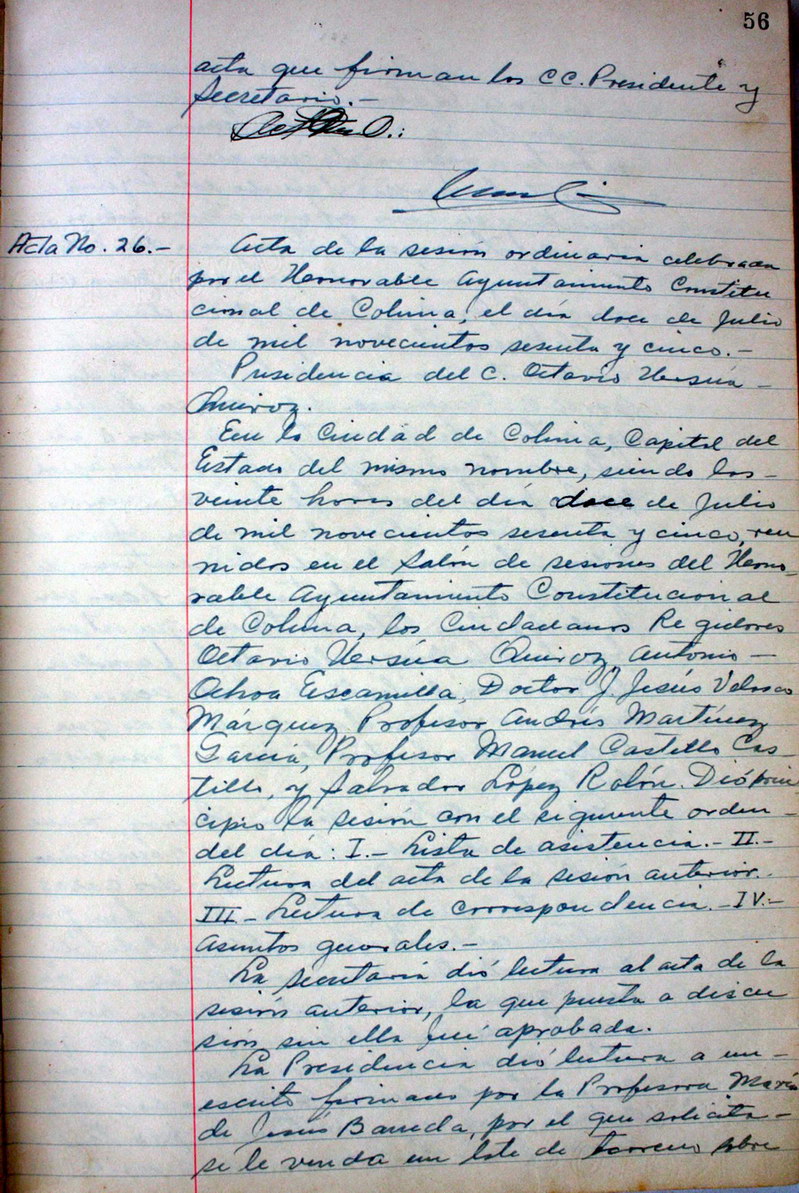 56
acta que firman los CC. Presidente y
Secretario.-
Acta No. 26.-
Acta de la sesión ordinaria celebrada
por el Honorable Ayuntamiento Constitu
cional de Colima, el día doce de Julio
de mil novecientos sesenta y cinco.-
Presidencia del C. Octavio Ursúa -
Quiroz.
En la Ciudad de Colima, Capital del
Estado del mismo nombre, siendo las -
veinte horas del día doce de Julio
de mil novecientos sesenta y cinco, reu
nidos en el Salón de sesiones del Hono-
rable Ayuntamiento Constitucional
de Colima, los Ciudadanos Regidores
Octavio Ursúa Quiroz, Antonio -
Ochoa Escamilla, Doctor J. Jesús Velasco
Márquez Profesor Andrés Martínez
García, Profesor Manuel Castillo Cas-
tillo, y Salvador López Rolón. Dió prin
cipio la sesión con el siguiente orden -
del día: I.- Lista de asistencia.- II.-
Lectura del acta de la sesión anterior.-
III.- Lectura de correspondencia.- IV.-
Asuntos generales.-
La secretaría dió lectura al acta de la
sesión anterior, la que puesta a discu
sión sin ella fué aprobada.
La Presidencia dió lectura a un -
escrito firmado por la Profesora María
de Jesús Barreda, por el que solicita -
se le venda un lote de terreno sobre